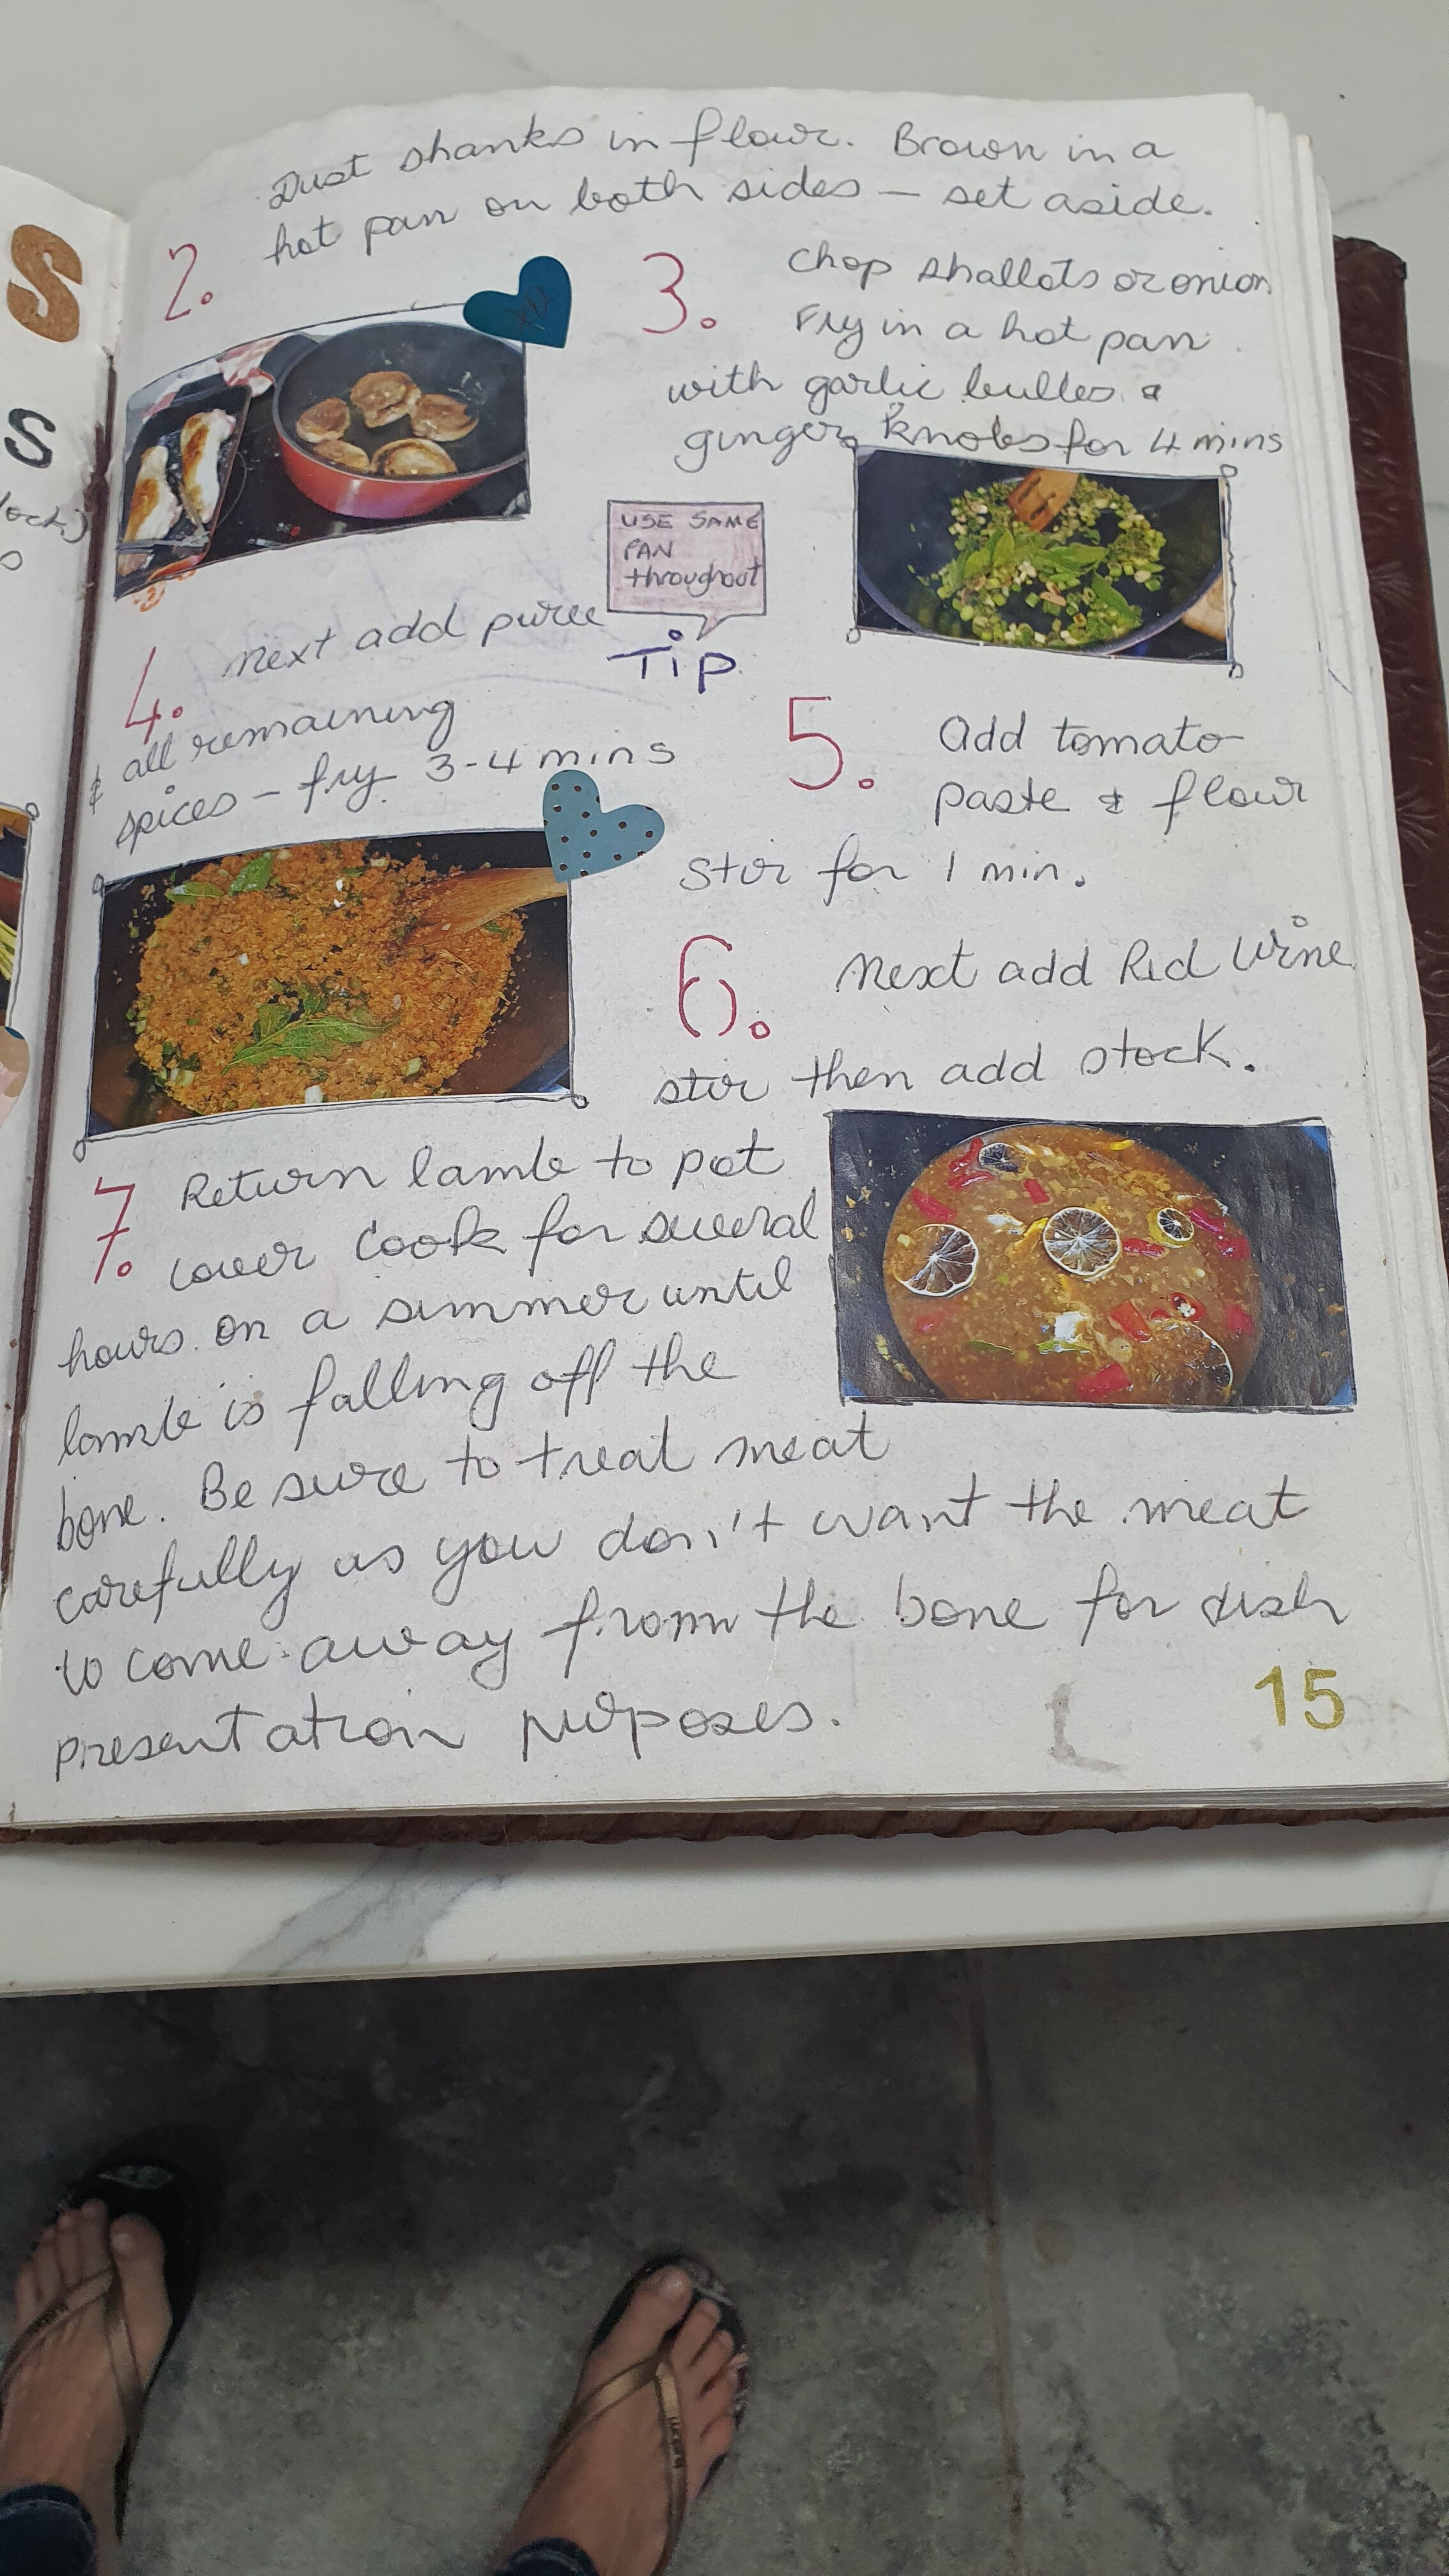 S
S
2.
Dust shanks in flour. Brown in a
hot pan on both sides - set aside.
3.
Chop shallots or onion
Fry in a hot pan
with garlic bulbs &
ginger knobs for 4 mins
USE SAME
PAN
throughout
Tip
4. Next add puree
& all remaining
spices - fry 3-4 mins
5. Add tomato
paste & flour
stir for 1 min.
6. Next add Red Wine
stir then add stock.
7. Return lamb to pot
cover cook for several
hours on a simmer until
lamb is falling off the
bone. Be sure to treat meat
carefully as you don't want the meat
to come away from the bone for dish
presentation purposes.
15